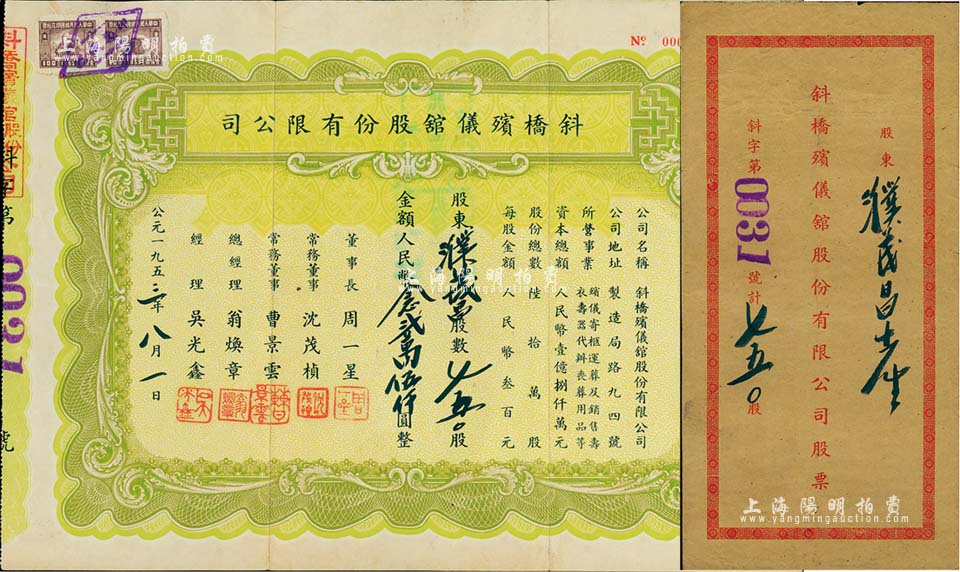 Nº 000
斜橋殯儀舘股份有限公司
公司名稱 斜橋殯儀舘股份有限公司
公司地址 製造局路九四號
所營事業 殯儀寄柩運葬及銷售壽衣壽器代辦喪葬用品等
資本總額 人民幣壹億捌仟萬元
股份總數 陸拾萬股
每股金額 人民幣叁百元
股東 股數 股
金額人民幣 圓整
董事長 周一星
常務董事 沈茂楨
常務董事 曹景雲
總經理 翁煥章
經理 吳光鑫
公元一九五三年八月一日
0031
號
斜橋殯儀舘股份有限公司股票
股東 濮茂昌先生
斜字第0031號計 股
上海陽明拍賣
www.yangmingauction.com
上海陽明拍賣
www.yangmingauction.com
上海陽明拍賣
www.yangmingauction.com